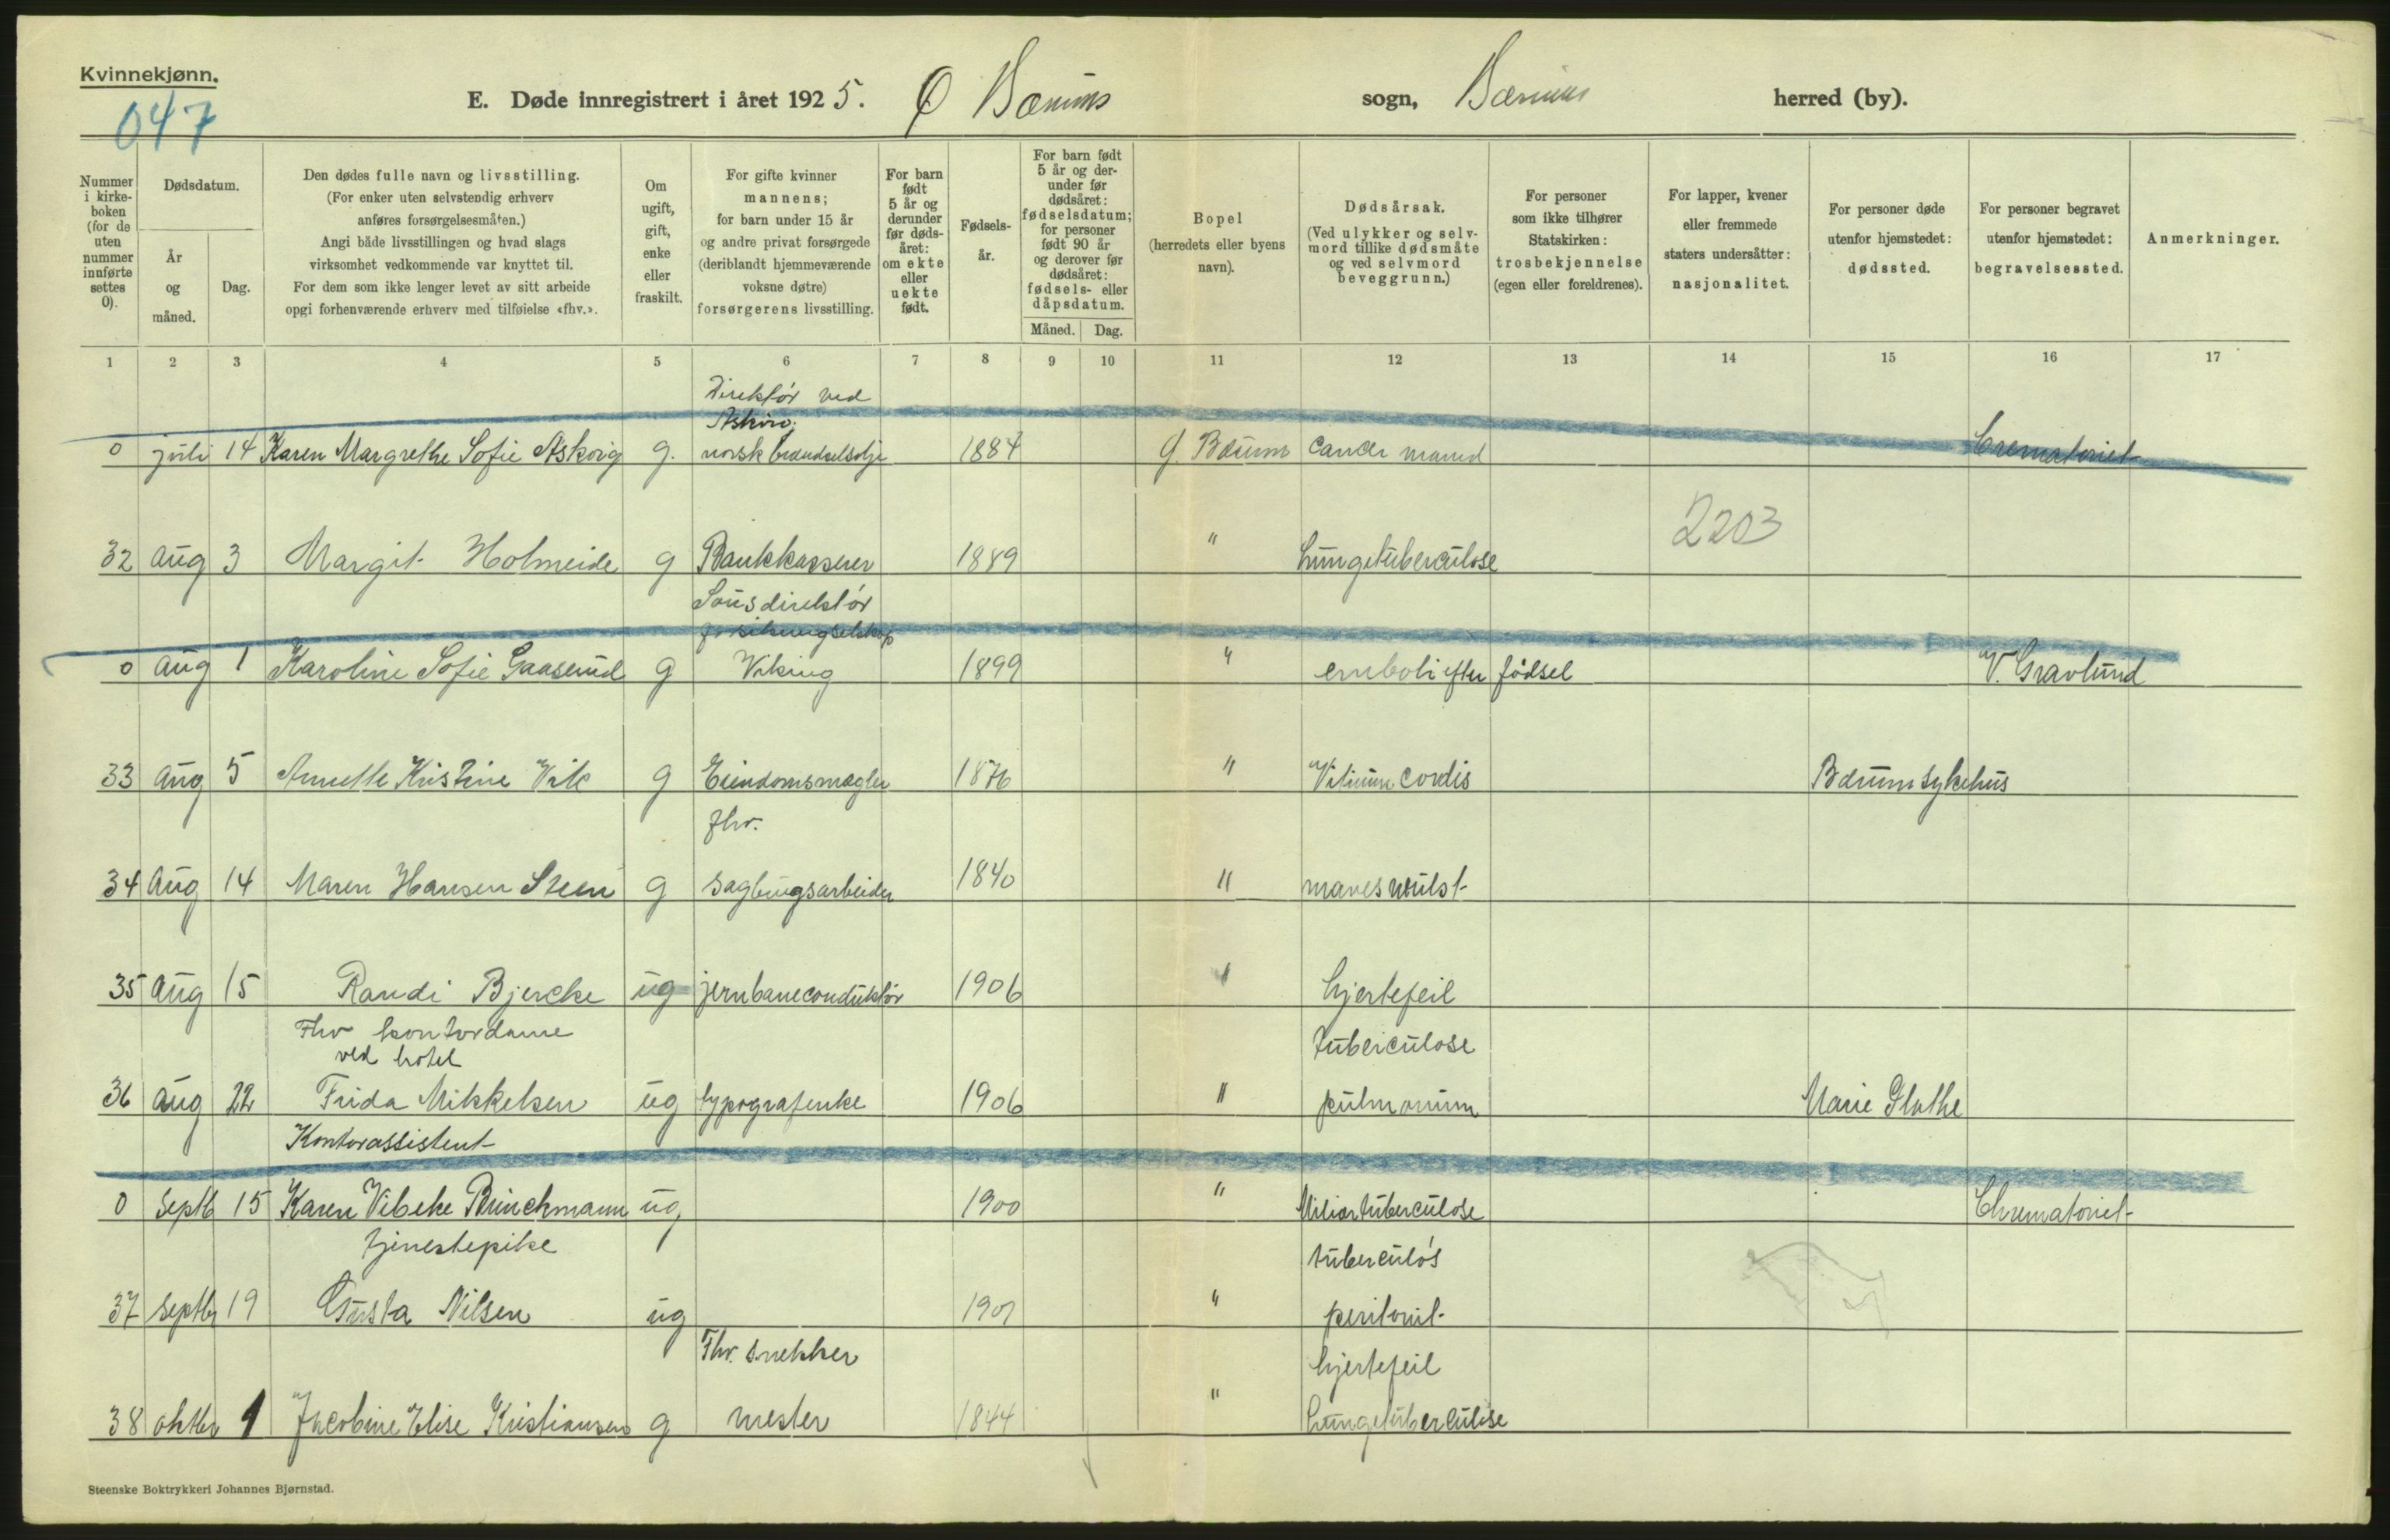 Kvinnekjønn.
047
E. Døde innregistrert i året 1925. Ø Bærums sogn, Bærums herred (by).
Nummer i kirke-boken (for de uten nummer innførte settes 0).
Dødsdatum.
År og måned.
Dag.
Den dødes fulle navn og livsstilling.
(For enker uten selvstendig erhverv
anføres forsørgelsesmåten.)
Angi både livsstillingen og hvad slags
virksomhet vedkommende var knyttet til.
For dem som ikke lenger levet av sitt arbeide
opgi forhenværende erhverv med tilføielse «fhv.».
Om ugift, gift, enke eller fraskilt.
For gifte kvinner
mannens;
for barn under 15 år
og andre privat forsørgede
(deriblandt hjemmeværende
voksne døtre)
forsørgerens livsstilling.
For barn født 5 år og derunder før døds-året: om ekte eller uekte født.
Fødsels-år.
For barn født 5 år og der-under før dødsåret: fødselsdatum; for personer født 90 år og derover før dødsåret: fødsels- eller dåpsdatum.
Måned. Dag.
Bopel
(herredets eller byens
navn).
Dødsårsak.
(Ved ulykker og selv-
mord tillike dødsmåte
og ved selvmord
beveggrunn.)
For personer
som ikke tilhører
Statskirken:
trosbekjennelse
(egen eller foreldrenes).
For lapper, kvener
eller fremmede
staters undersåtter:
nasjonalitet.
For personer døde
utenfor hjemstedet:
dødssted.
For personer begravet
utenfor hjemstedet:
begravelsessted.
Anmerkninger.
1 2 3 4 5 6 7 8 9 10 11 12 13 14 15 16 17
Direktør ved
0 juli 14 Karen Margrethe Sofie Askvig g. norsk brændselsolje 1884 Bærum cancer Crematoriet
2203
32 aug 3 Margit Holmeide g Bankkasserer 1889 " Lungetuberculose
Sousdirektør
0 aug 1 Karoline Sofie Gaaserud g Viking 1899 " emboli efter fødsel V. Gravlund
33 aug 5 Annette Kristine Vik g Eiendomsmægler 1876 " Vitium cordis Bærum sykehus
fhv.
34 aug 14 Maren Hansen Steen g sagbrugsarbeider 1840 " maveswulst
35 aug 15 Randi Bjercke ug jernbaneconduktør 1906 " hjertefeil
Fhv kontordame
ved hotel
tuberculose
36 aug 22 Frida Mikkelsen ug typografenke 1906 " pulmonum Marie Plathe
Kontorassistent
0 septb 15 Karen Vibeke Brinchmann ug 1900 " Miliartuberculose Chrematoriet
tjenestepike
tuberculøs
37 septbr 19 Gusta Nilsen ug 1901 " peritonit
Fhv. snekker
hjertefeil
38 oktbr 1 Jacobine Elise Kristiansen g mester 1844 " Lungetuberculose
Steenske Boktrykkeri Johannes Bjørnstad.